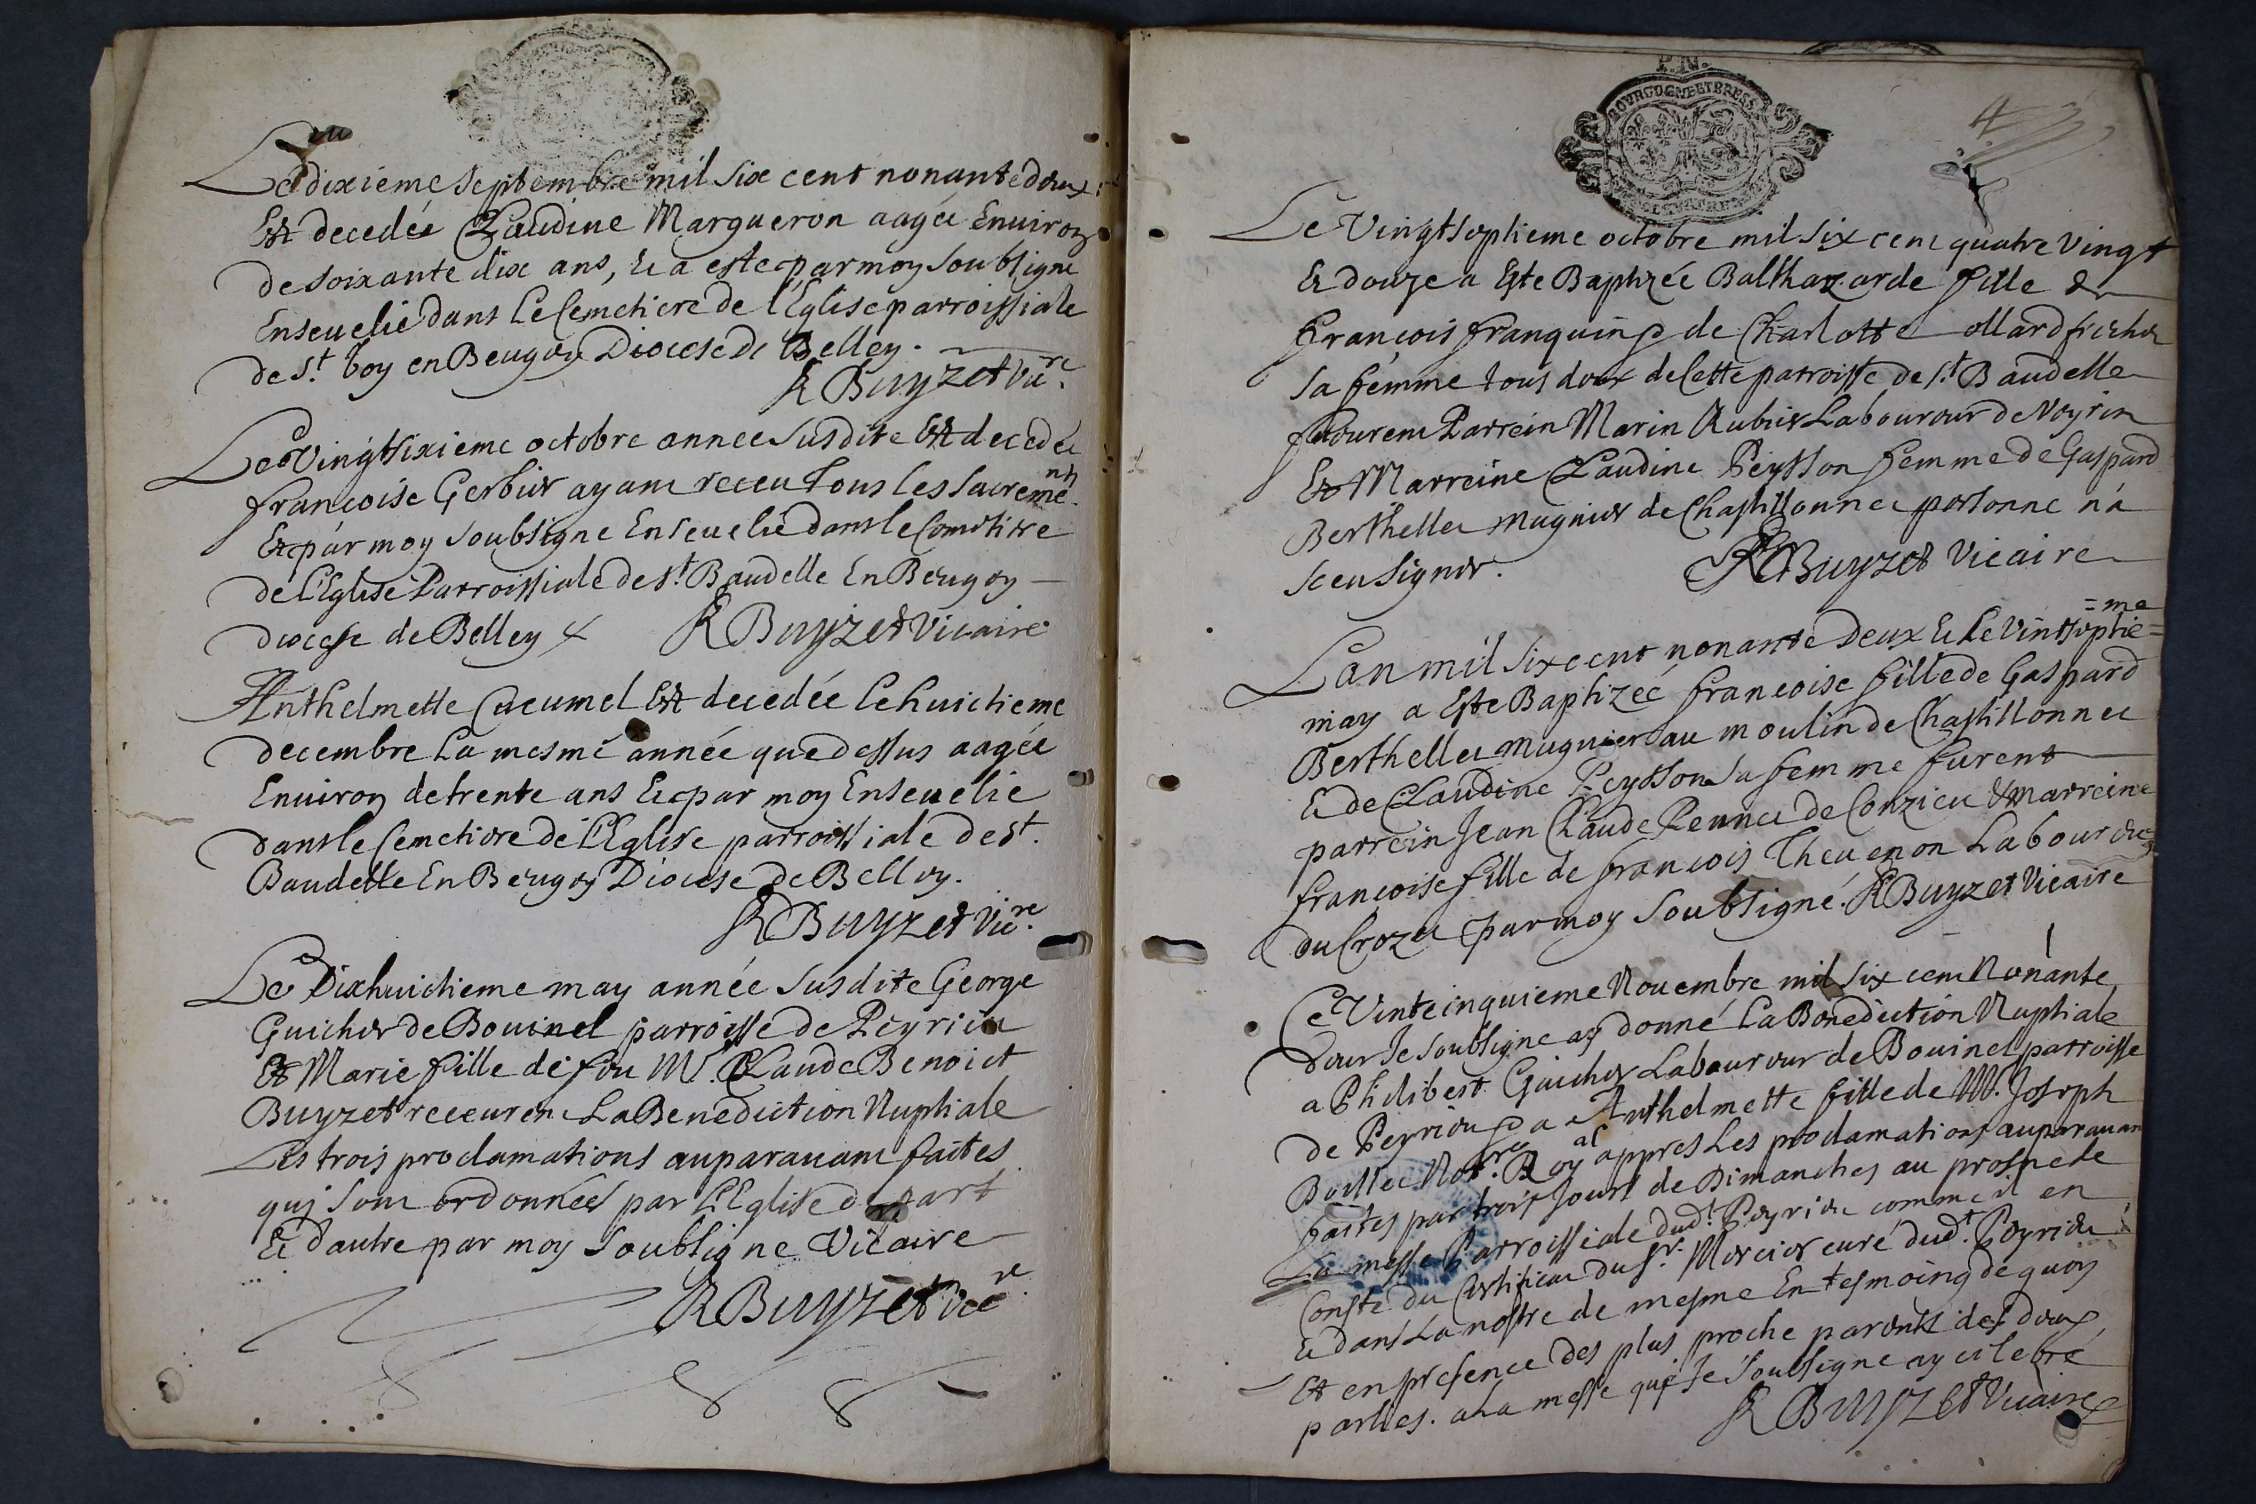 Le dixieme septembre mil six cent nonante deux
Est decedée Claudine Margueron aagée Enuiron
de soixante dix ans, & a este par moy soubsigne
Enseuelie dans Le Cemetiere de l'Eglise parroissiale
de St. boy en Beugey Diocese de Belley.
R Buyzet vic.re
Le Vingtsixieme octobre annee susdite Est decedée
francoise Gerbier ayant receu tous les sacremēnts
Et par moy soubsigne Enseuelie dans le Cemetiere
de L'Eglise Parroissiale de St. Baudelle En Beugey
diocese de Belley R Buyzet vicaire
Anthelmette Cucumel Est decedée le huictieme
decembre La mesme année que dessus aagée
Enuiron de trente ans & par moy Enseuelie
dans le Cemetiere de L'Eglise parroissiale de St.
Baudelle En Beugey Diocese de Belley.
R Buyzet vic.re
Le Dixhuictieme may année susdite George
Guicher de Bouinel parroisse de Peyrieu
Et Marie fille de feu M. Claude Benoict
Buyzet receurent La Benediction Nuptiale
Les trois proclamations auparauant faites
qui sont ordonnées par L'Eglise d part
& d'autre par moy soubsigne vicaire
R Buyzet vic.re
P. IN.
BOVRGOGNE ET BRESS
4
Le Vingtseptieme octobre mil six cent quatre vingt
& douze a Este Baptizée Balthazarde fille de
francois franquin & de Charlotte ollard frichet
sa femme tous deux de Cette parroisse de St. Baudelle
furent Parrein Marin Rubier Laboureur de Voyrin
Et Marreine Claudine Peysson femme de Gaspard
Berthellet mugnier de Chastillonnet personne n'a
sceu signer. R Buyzet Vicaire
Lan mil six cent nonante deux & le vintseptie=
=me
may a Este Baptizée francoise fille de Gaspard
Berthellet mugnier au moulin de Chastillonnet
& de Claudine Peysson sa femme furent
parrein Jean Claude Peunet de Conzieu & marreine
francoise fille de francois Theuenon Laboureur
du Crozet par moy soubsigné. R Buyzet Vicaire
Ce Vintcinquieme Nouembre mil six cent Nonante
deux Je soubsigne ay donné La Benediction Nuptiale
a Philibert Guicher Laboureur de Bouinel parroisse
de Peyrieu & a Anthelmette fille de M. Joseph
Bouillet Not.re Royal appres Les proclamations auparauant
faites par trois Jours de Dimanches au prosne de
La messe Parroissiale dud.t Peyrieu comme il en
Conste du Certificat du Sr. Mercier curé dud.t Peyrieu
& dans La nostre de mesme En tesmoing de quoy
Et en presence des plus proche parents des deux
parties. a La messe que Je soubsigne ay celebré
R Buyzet Vicaire